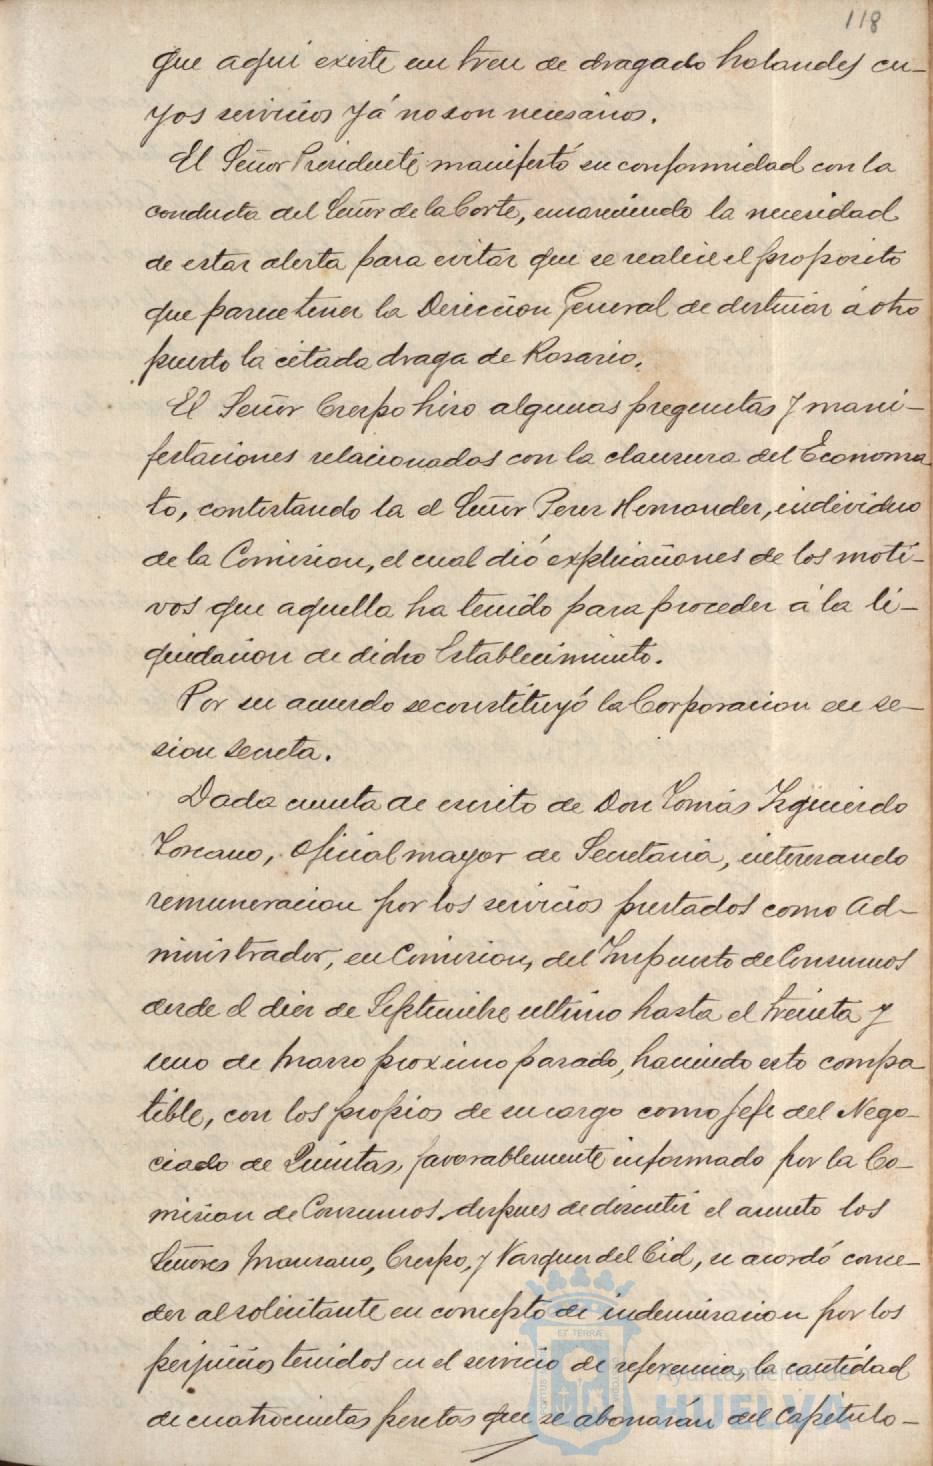 118
que aqui existe un tren de dragado holandes cu-
yos servicios yá no son necesarios.
El Señor Presidente manifestó su conformidad con la
conducta del Señor de la Corte, encareciendo la necesidad
de estar alerta para evitar que se realice el proposito
que parece tener la Direccion General de destinar á otro
puerto la citada draga de Rosario.
El Señor Crespo hizo algunas preguntas y mani-
festaciones relacionadas con la clausura del Economa
to, contestando la el Señor Perez Hernandez, individuo
de la Comision, el cual dió explicaciones de los moti-
vos que aquella ha tenido para proceder á la li-
quidacion de dicho Establecimiento.
Por su acuerdo se constituyó la Corporacion en se-
sion secreta.
Dada cuenta de escrito de Don Tomás Izquierdo
Toscano, Oficial mayor de Secretaria, interesando
remuneracion por los servicios prestados como Ad-
ministrador, en Comision, del Impuesto de Consumos
desde el diez de Septiembre ultimo hasta el treinta y
uno de Marzo proximo pasado, haciendo esto compa
tible, con los propios de su cargo como Jefe del Nego-
ciado de Quintas, favorablemente informado por la Co-
mision de Consumos, despues de discutir el asunto los
Señores Manzano, Crespo, y Vazquez del Cid, se acordó conce-
der al solicitante en concepto de indemnizacion por los
perjuicios tenidos en el servicio de referencia, la cantidad
de cuatrocientas pesetas que se abonarán del Capitulo-
ET TERRÆ
Ayuntamiento de
HUELVA